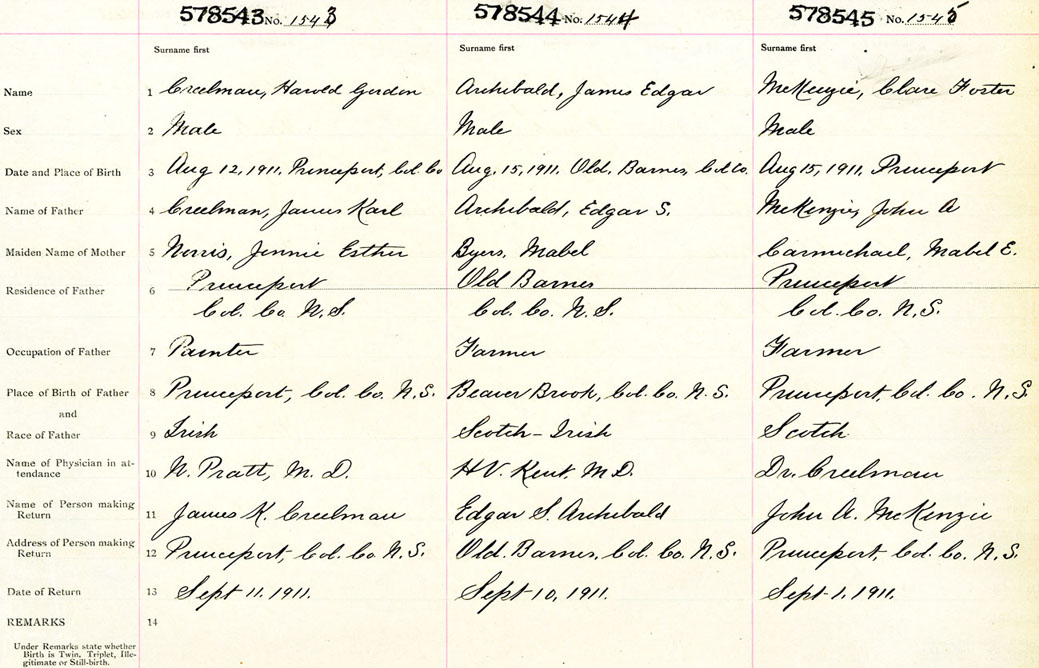 578543 No. 1543 578544 No. 1544 578545 No. 1545
Surname first Surname first Surname first
Name 1 Creelman, Harold Gordon Archibald, James Edgar McKenzie, Clare Foster
Sex 2 Male Male Male
Date and Place of Birth 3 Aug 12, 1911, Princeport, Col. Co Aug. 15, 1911. Old. Barnes, Col Co. Aug 15, 1911, Princeport
Name of Father 4 Creelman, James Karl Archibald, Edgar S. McKenzie, John A
Maiden Name of Mother 5 Norris, Jennie Esther Byers, Mabel Carmichael, Mabel E.
Residence of Father 6 Princeport Old Barnes Princeport
Col. Co. N.S. Col. Co. N.S. Col. Co. N.S.
Occupation of Father 7 Painter Farmer Farmer
Place of Birth of Father 8 Princeport, Col. Co. N.S. Beaver Brook, Col. Co. N.S. Princeport, Col. Co. N.S.
and
Race of Father 9 Irish Scotch-Irish Scotch
Name of Physician in at-
tendance 10 N. Pratt, M. D. H.V. Kent. M.D. Dr. Creelman
Name of Person making
Return 11 James K. Creelman Edgar S. Archibald John A. McKenzie
Address of Person making
Return 12 Princeport, Col. Co. N.S. Old. Barnes, Col. Co. N.S. Princeport, Col. Co. N.S.
Date of Return 13 Sept 11. 1911. Sept 10, 1911. Sept. 1, 1911.
REMARKS 14
Under Remarks state whether
Birth is Twin, Triplet, Ille-
gitimate or Still-birth.